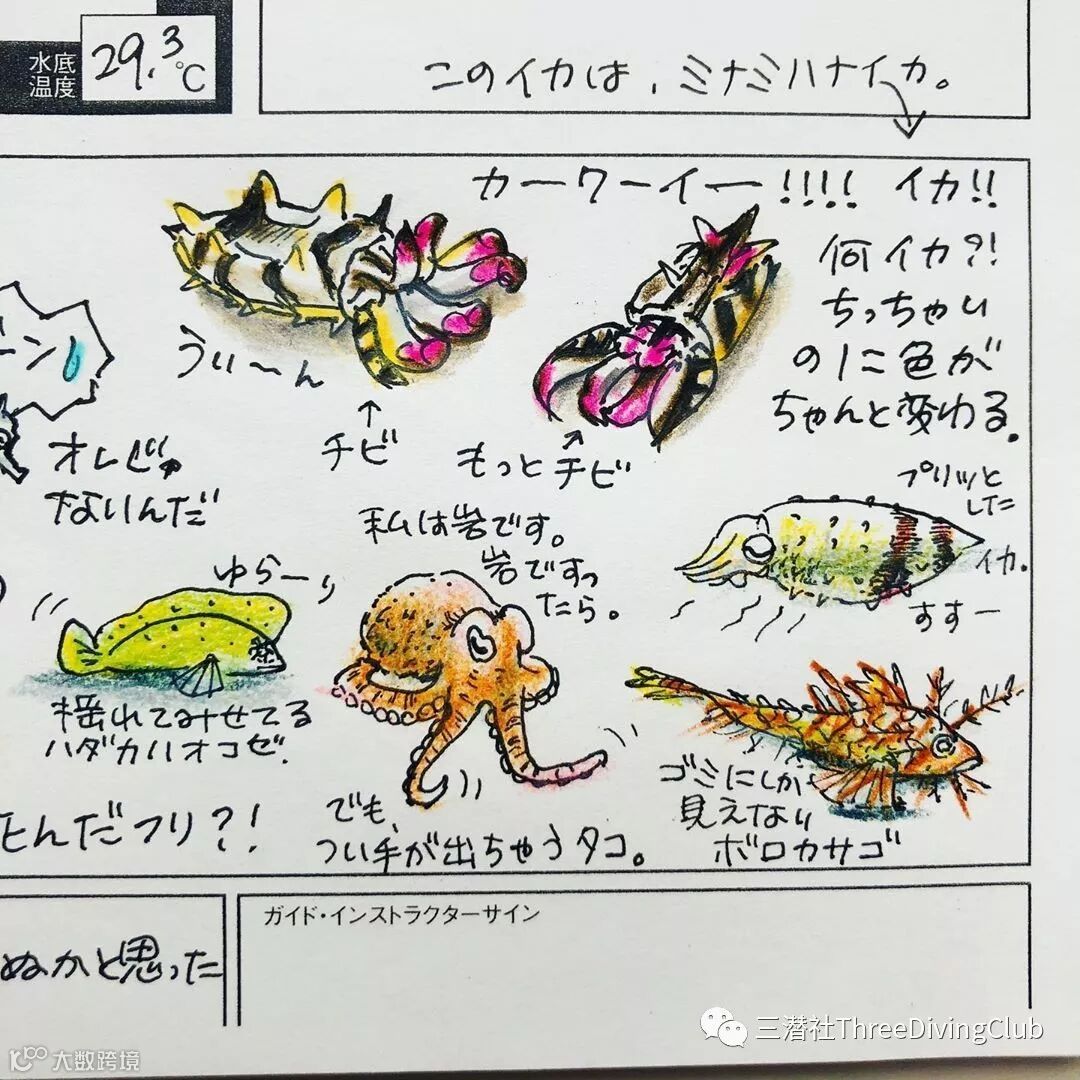 水底
温度
29.3℃
このイカは、ミナミハナイカ。
カーワーイー!!!! イカ!!
何イカ?!
ちっちゃい
のに色が
ちゃんと変わる。
ーン
うぃ〜ん
チビ
もっとチビ
オレじゃ
ないんだ
私は岩です。
岩ですっ
たら。
プリッと
した
イカ。
すすー
ゆらーり
揺れてみせてる
ハダカハオコゼ.
でも、
つい手が出ちゃうタコ。
ゴミにしか
見えない
ボロカサゴ
んだフリ?!
ガイド・インストラクターサイン
ぬかと思った
三潜社ThreeDivingClub
大数跨境